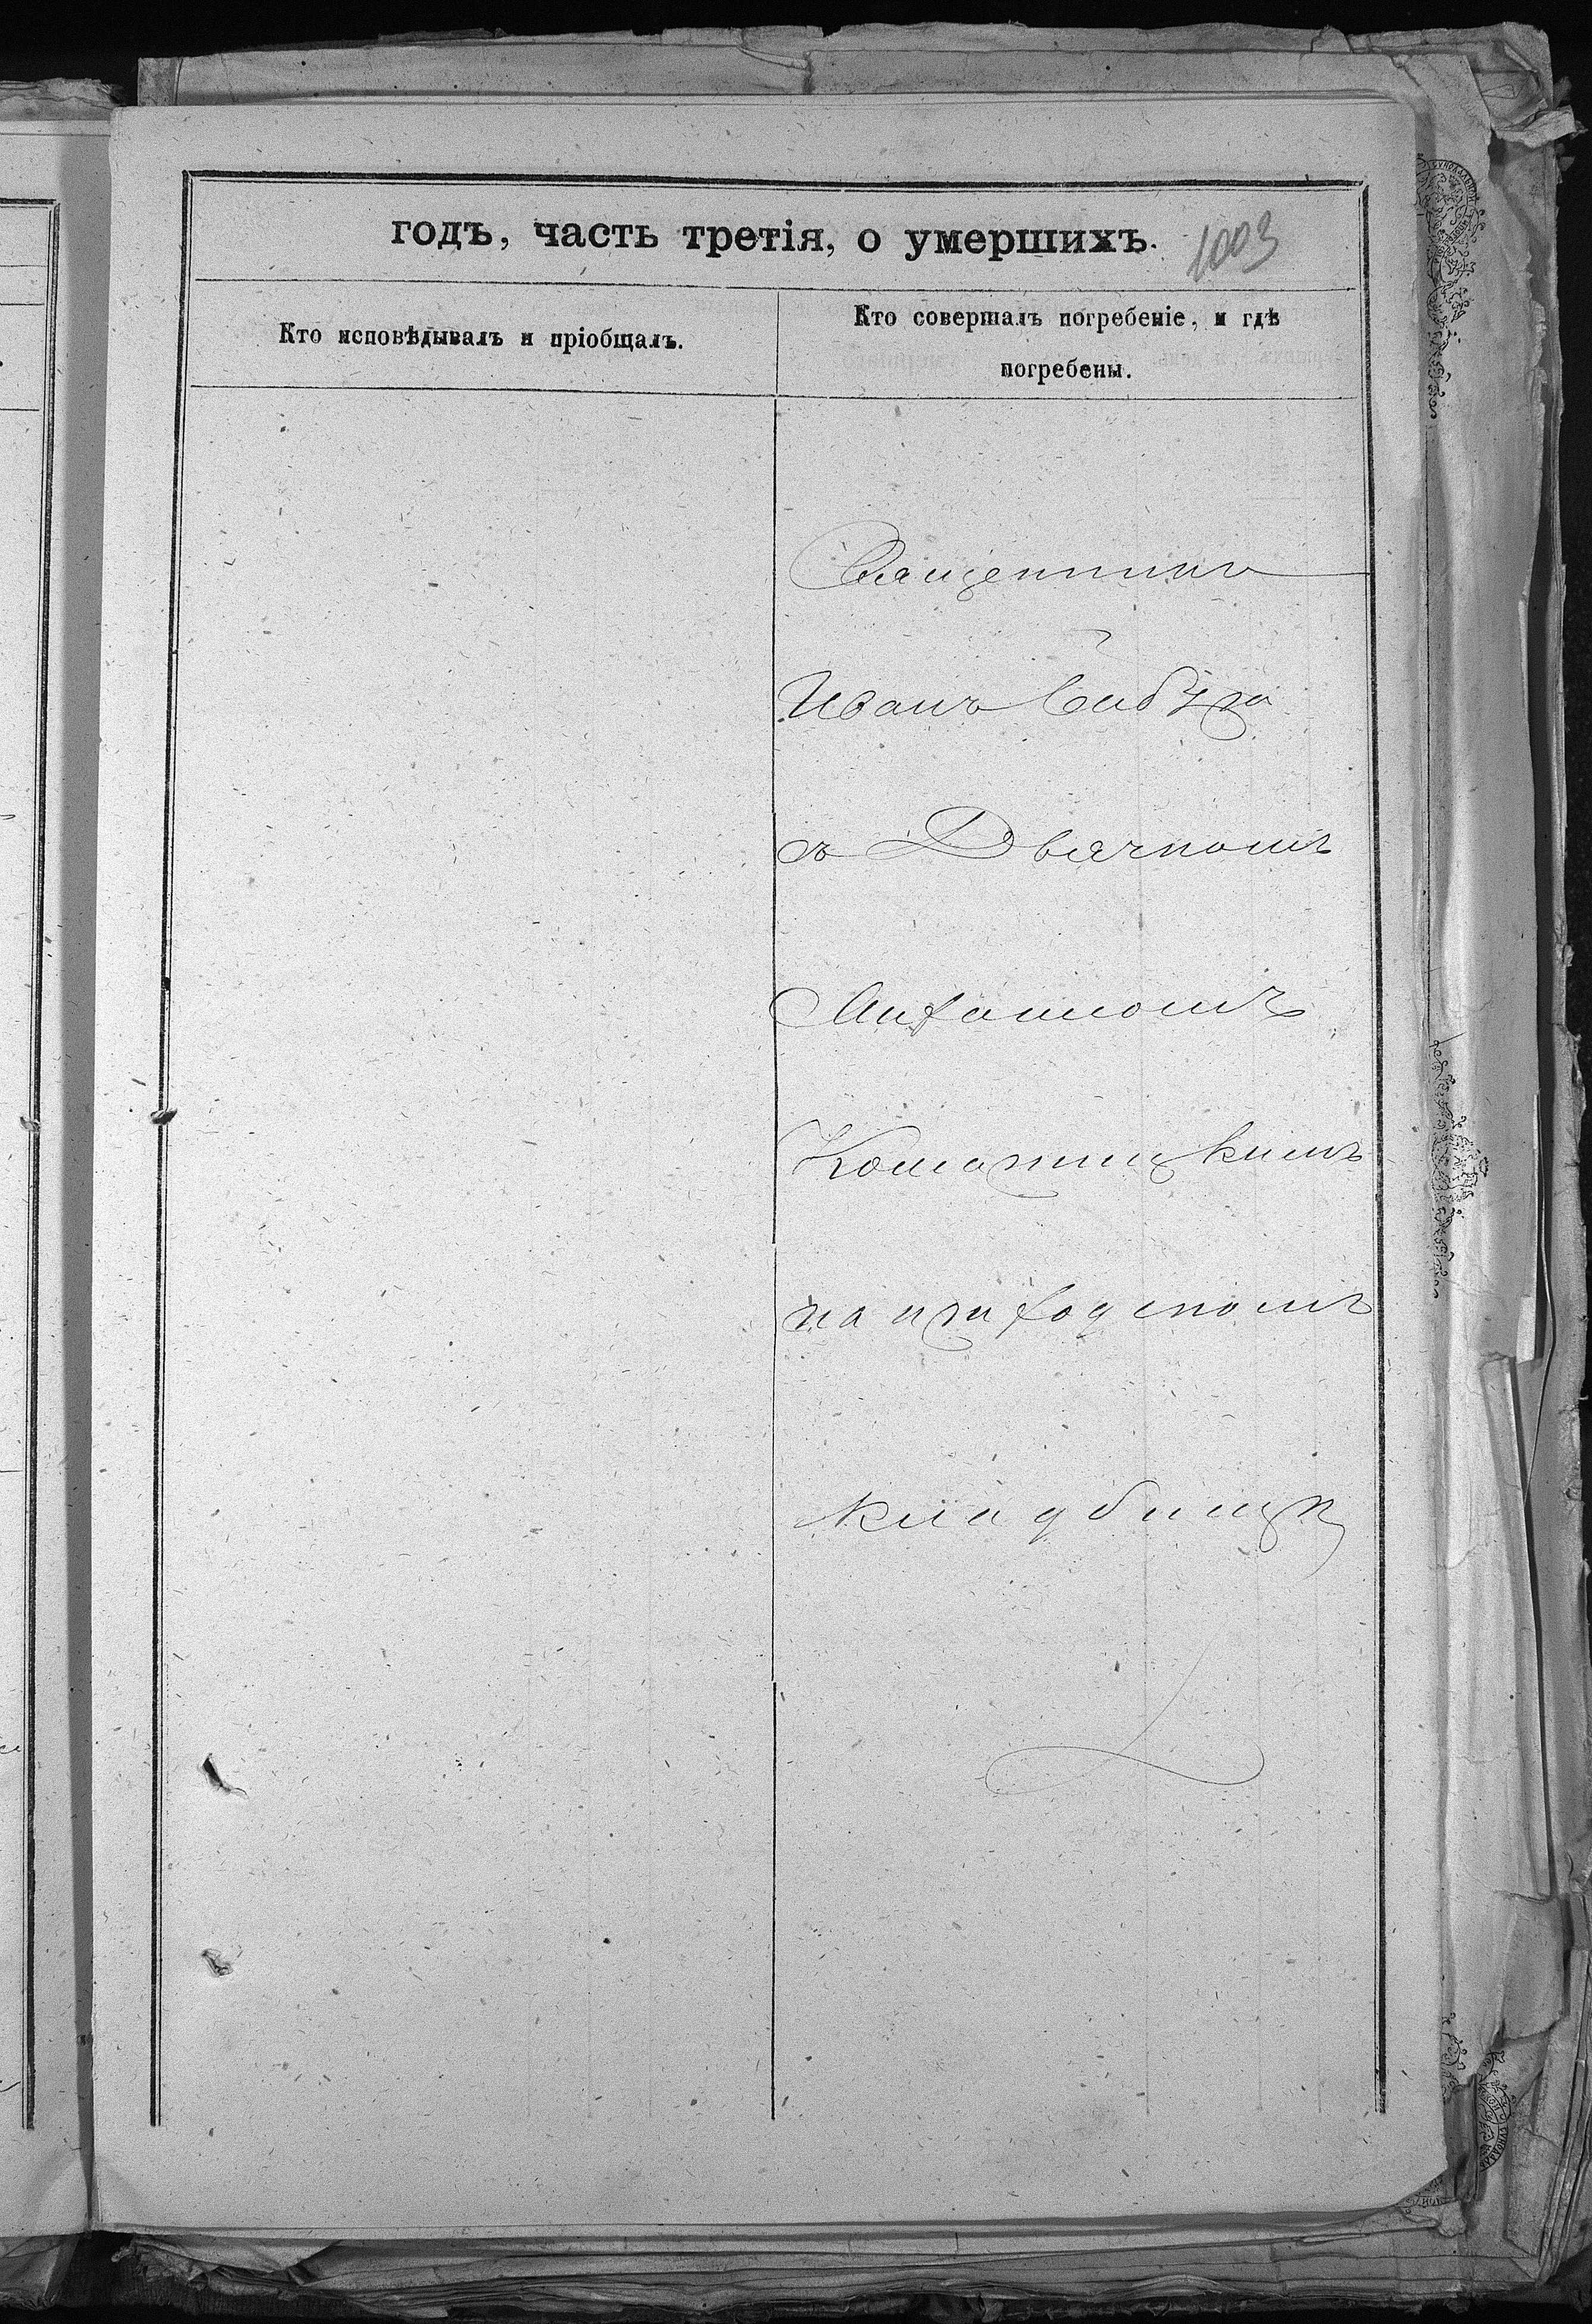 годъ, часть третія, о умершихъ.
1003
Кто исповѣдывалъ и пріобщалъ.
Кто совершалъ погребеніе, и гдѣ
погребены.
Священникъ
Иванъ
съ Дьячкомъ
на приходскомъ
кладбищѣ